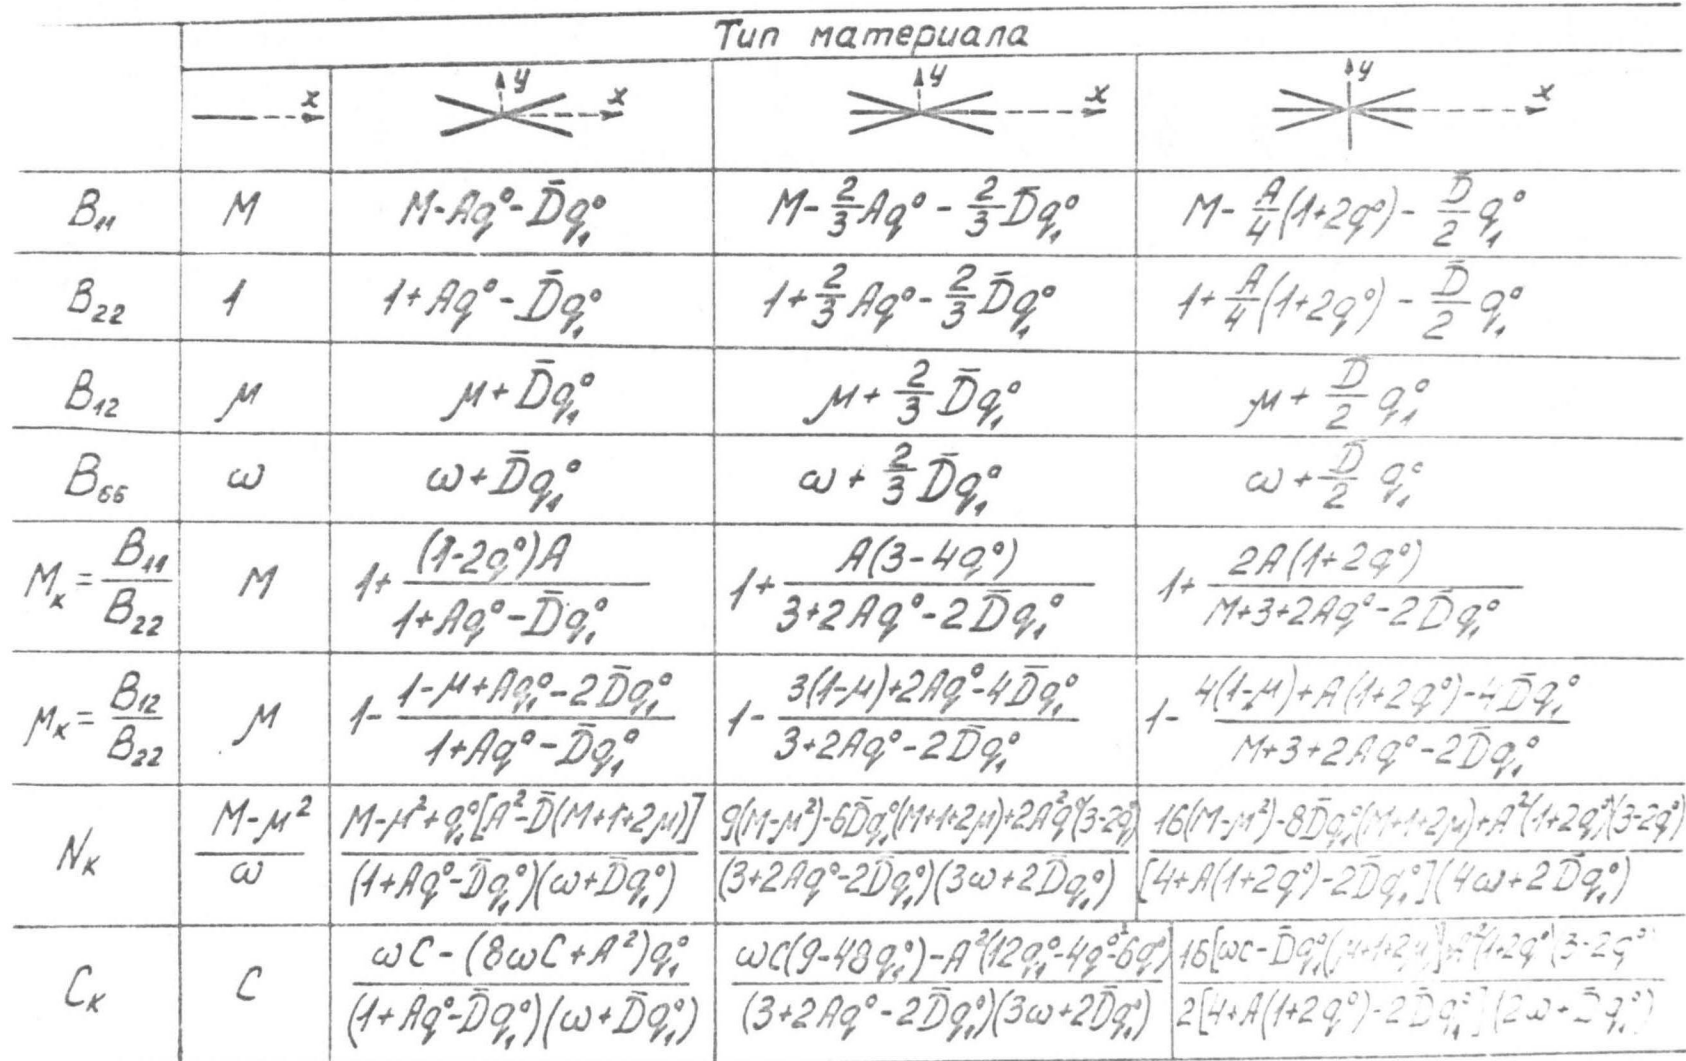 Тип материала
x y x y x y x
B₁₁ M M-Aq°-D̄q₁° M-2/3Aq°-2/3D̄q₁° M-A/4(1+2q°)-D̄/2 q₁°
B₂₂ 1 1+Aq°-D̄q₁° 1+2/3Aq°-2/3D̄q₁° 1+A/4(1+2q°)-D̄/2 q₁°
B₁₂ μ μ+D̄q₁° μ+2/3D̄q₁° μ+D̄/2 q₁°
B₆₆ ω ω+D̄q₁° ω+2/3D̄q₁° ω+D̄/2 q₁°
Mₖ=B₁₁/B₂₂ M 1+(1-2q°)A/(1+Aq°-D̄q₁°) 1+A(3-4q°)/(3+2Aq°-2D̄q₁°) 1+2A(1+2q°)/(M+3+2Aq°-2D̄q₁°)
μₖ=B₁₂/B₂₂ μ 1-(1-μ+Aq₁°-2D̄q₁°)/(1+Aq°-D̄q₁°) 1-(3(1-μ)+2Aq°-4D̄q₁°)/(3+2Aq°-2D̄q₁°) 1-(4(1-μ)+A(1+2q°)-4D̄q₁°)/(M+3+2Aq°-2D̄q₁°)
Nₖ (M-μ²)/ω (M-μ²+q₁°[A²-D̄(M+1+2μ)])/((1+Aq°-D̄q₁°)(ω+D̄q₁°)) (9(M-μ²)-6D̄q₁°(M+1+2μ)+2A²q°(3-2q°))/((3+2Aq°-2D̄q₁°)(3ω+2D̄q₁°)) (16(M-μ²)-8D̄q₁°(M+1+2μ)+A²(1+2q°)(3-2q°))/([4+A(1+2q°)-2D̄q₁°](4ω+2D̄q₁°))
Cₖ C (ωC-(8ωC+A²)q₁°)/((1+Aq°-D̄q₁°)(ω+D̄q₁°)) /((3+2Aq°-2D̄q₁°)(3ω+2D̄q₁°)) /(2[4+A(1+2q°)-2D̄q₁°](2ω+D̄q₁°))